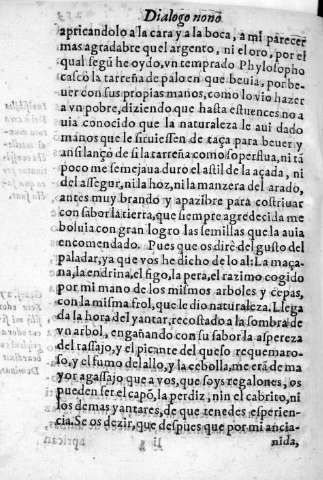 Dialogo nono
apricandolo a la cara y a la boca, a mi parecer
mas agradabre quel argento, ni el oro, por el
qual segũ he oydo, vn temprado Phylosopho
cascò la tarreña de palo en que beuia, por be-
uer con sus propias manos, como lo vio hazer
a vn pobre, diziendo que hasta estuences no a
uia conocido que la naturaleza le aui dado
manos que le siruiessen de taça para beuer y
ansi lançò de si la tarreña como soperflua, ni tã
poco me semejaua duro el astil de la açada, ni
del assegur, ni la hoz, ni la manzera del arado,
antes muy brando y apazibre para costriuar
con sabor la tierra, que siempre agredecida me
boluia con gran logro las semillas que la auia
encomendado. Pues que os dirè del gusto del
paladar, ya que vos he dicho de lo al: La maça-
na, la endrina, el figo, la pera, el razimo cogido
por mi mano de los mismos arboles y cepas,
con la misma frol, que le dio naturaleza. Llega
da la hora del yantar, recostado a la sombra de
vn arbol, engañando con su sabor la aspereza
del tassajo, y el picante del queso requemaro-
so, y el fumo del allo, y la cebolla, me erà de ma
yor agassajo que a vos, que soys regalones, os
pueden ser el capõ, la perdiz, nin el cabrito, ni
los demas yantares, de que tenedes esperien-
cia. Se os dezir, que despues que por mi ancia-
nida,